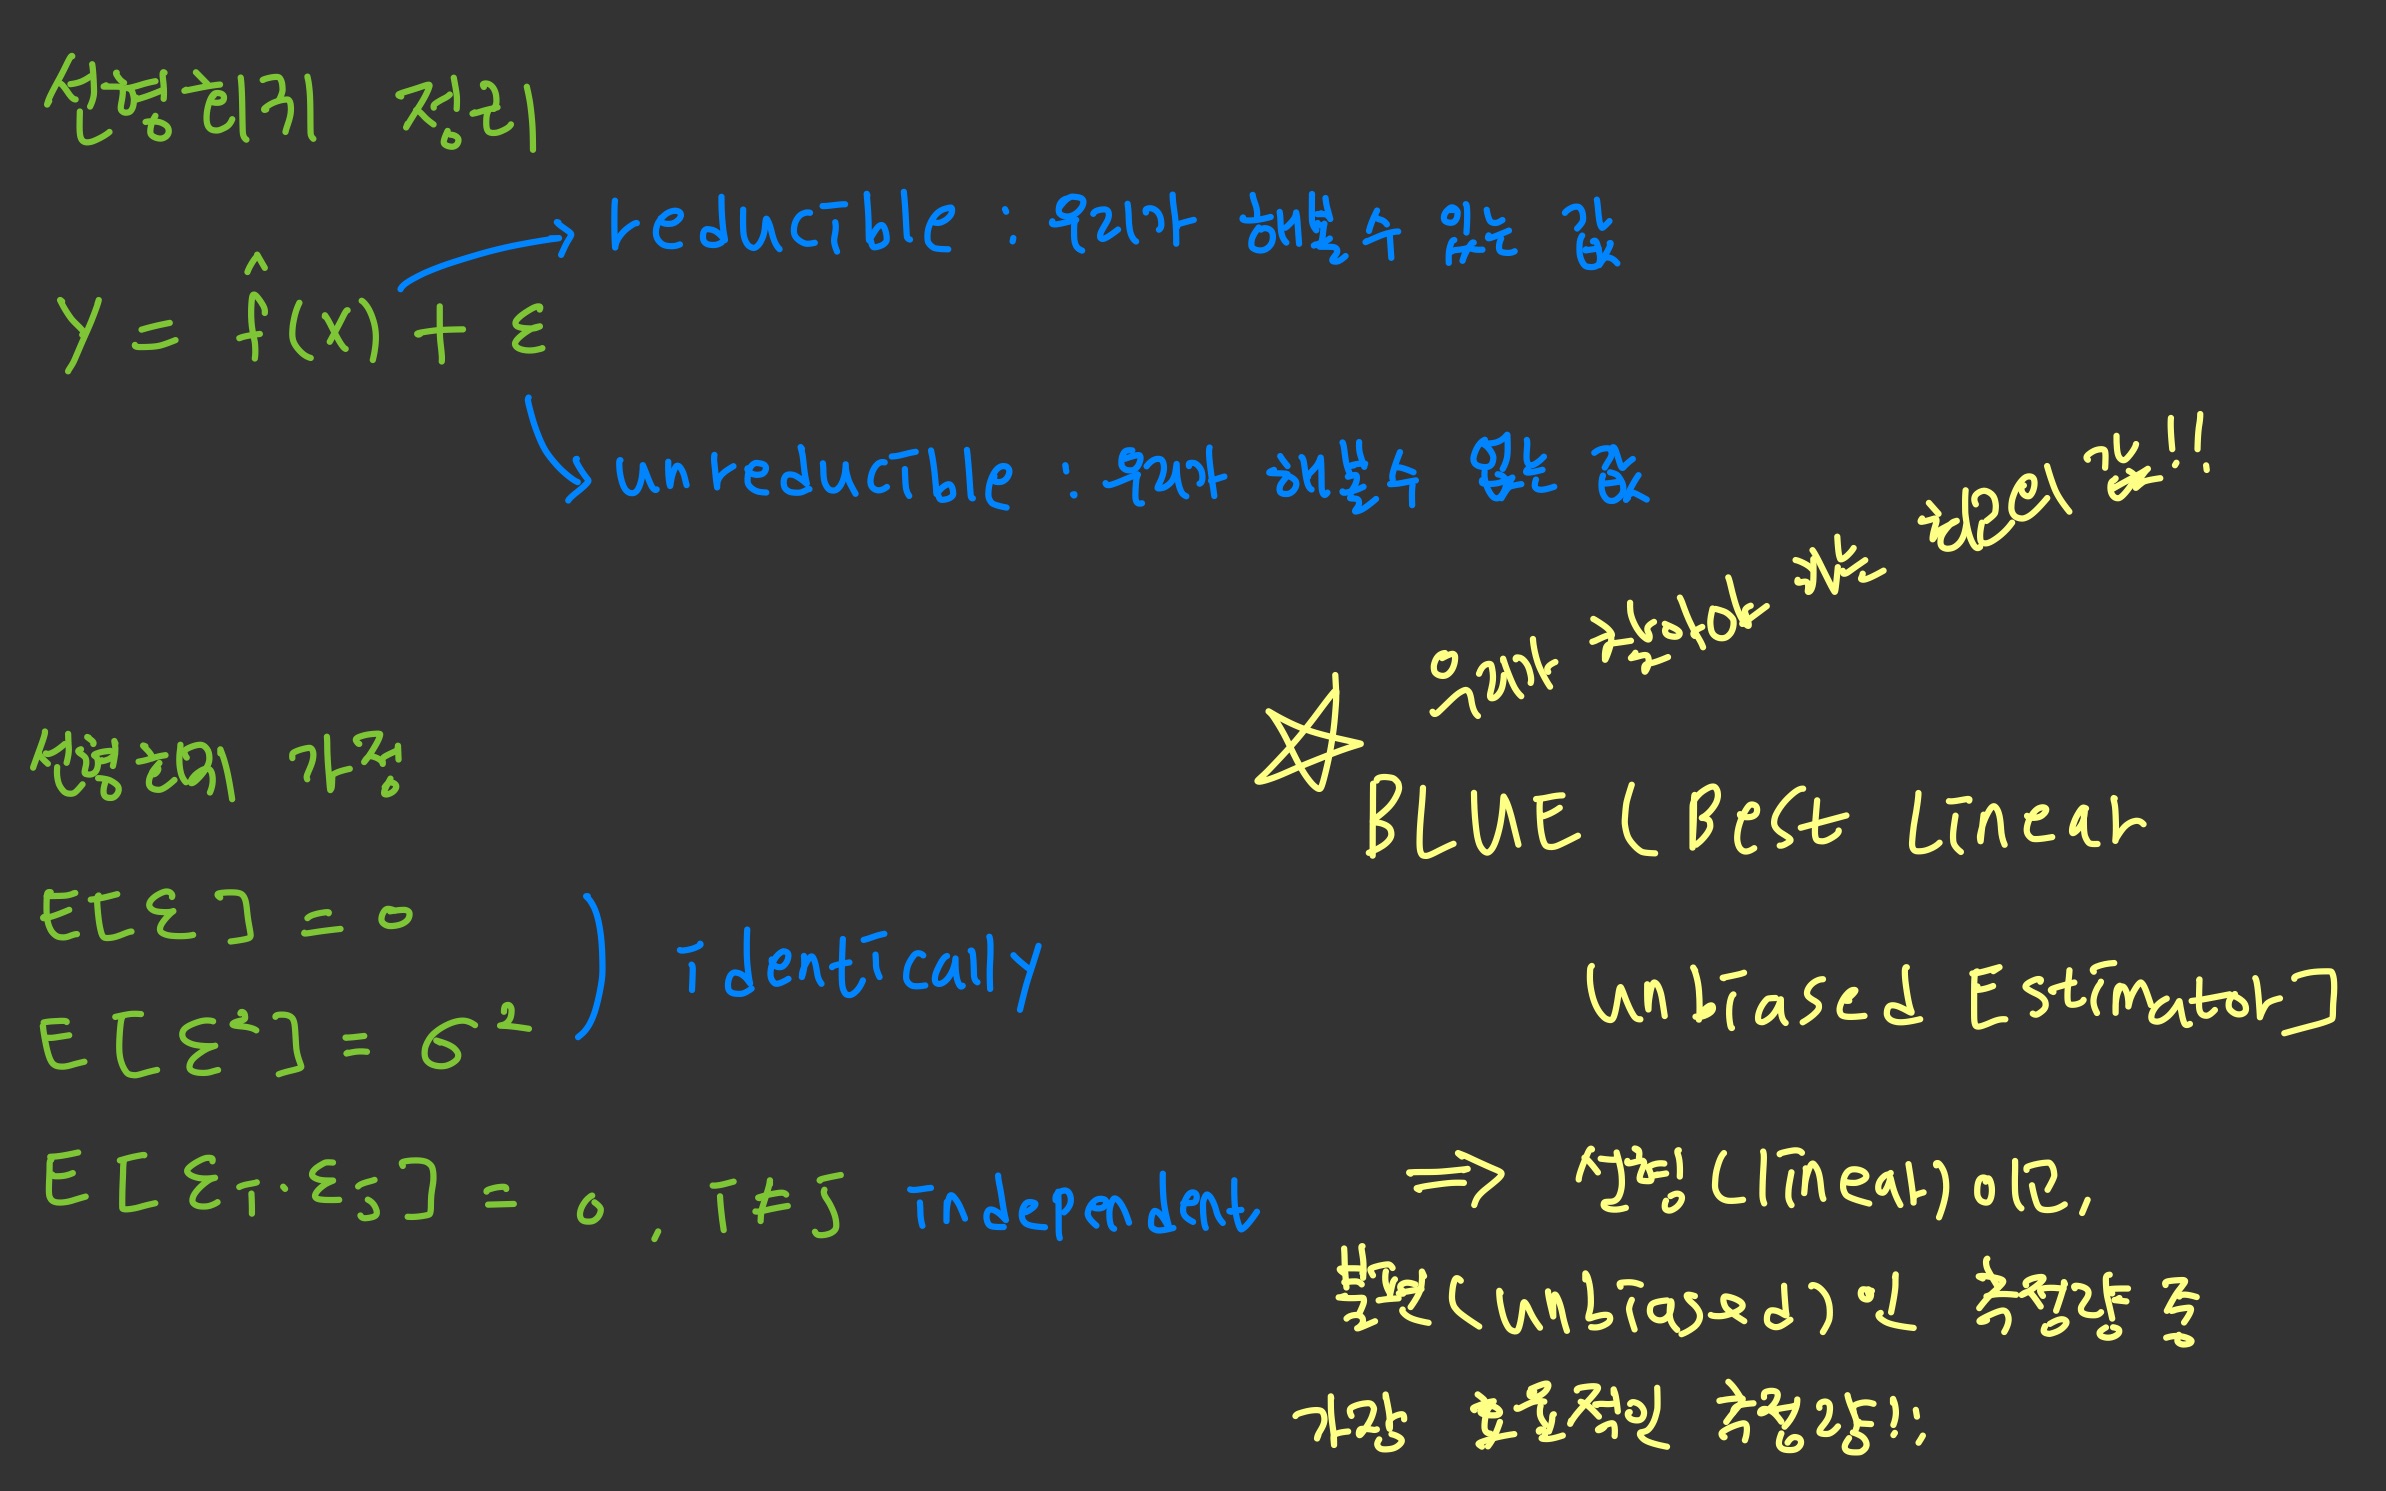 선형회귀 정의
reducible : 우리가 해볼 수 있는 값
Y = f̂(x) + ε
unreducible : 우리가 해볼 수 없는 값
우리가 추정해야 하는 최선의 값!!
선형회귀 가정
BLUE ( Best Linear
Unbiased Estimator]
E[ε] = 0
identically
E[ε²] = σ²
E[εi·εj] = 0, i≠j independent
⇒ 선형(linear) 이고,
불편(unbiased)인 추정량 중
가장 효율적인 추정량!!,